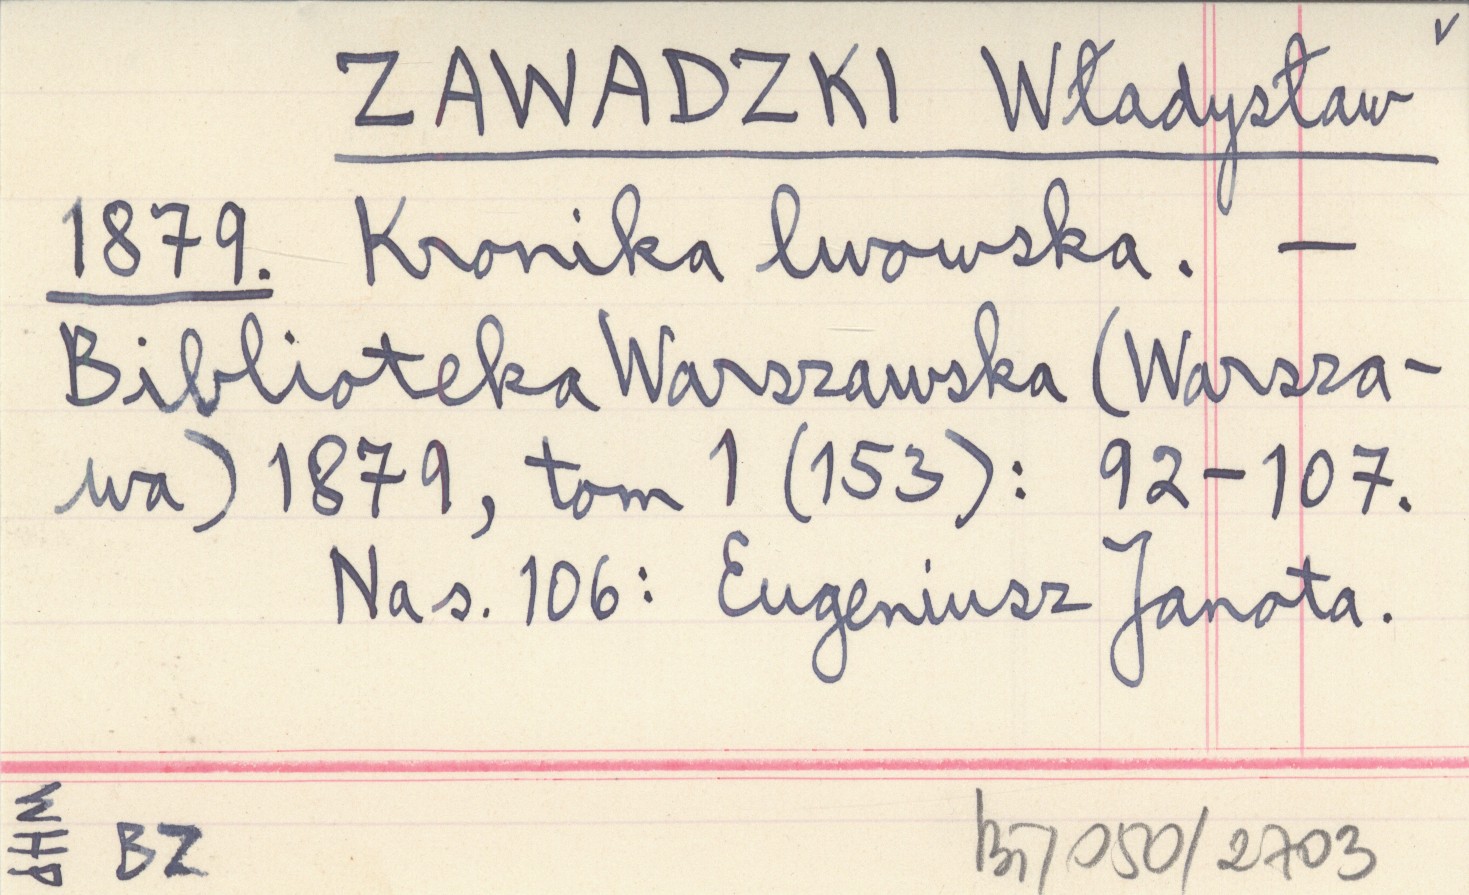 v
ZAWADZKI Władysław
1879. Kronika lwowska. —
Biblioteka Warszawska (Warsza-
wa) 1879, tom 1 (153): 92-107.
Na s. 106: Eugeniusz Janota.
WHP
BZ